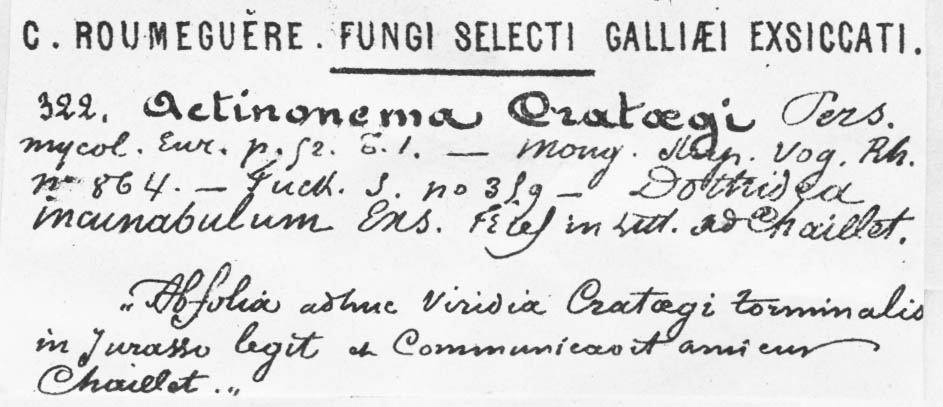 C. ROUMEGUĔRE. FUNGI SELECTI GALLIÆI EXSICCATI.
322. Actinonema Cratægi Pers.
mycol. Eur. p. 52. T. 1. — Moug. Stirp. Vog. Rh.
no 864. — Fuck. S. no 359 — Dothidea
incunabulum Exs. Fries in Litt. ad Chaillet.
„Ab folia adhuc Viridia Cratægi torminalis
in Jurasso legit et Communicavit amicus
Chaillet.„